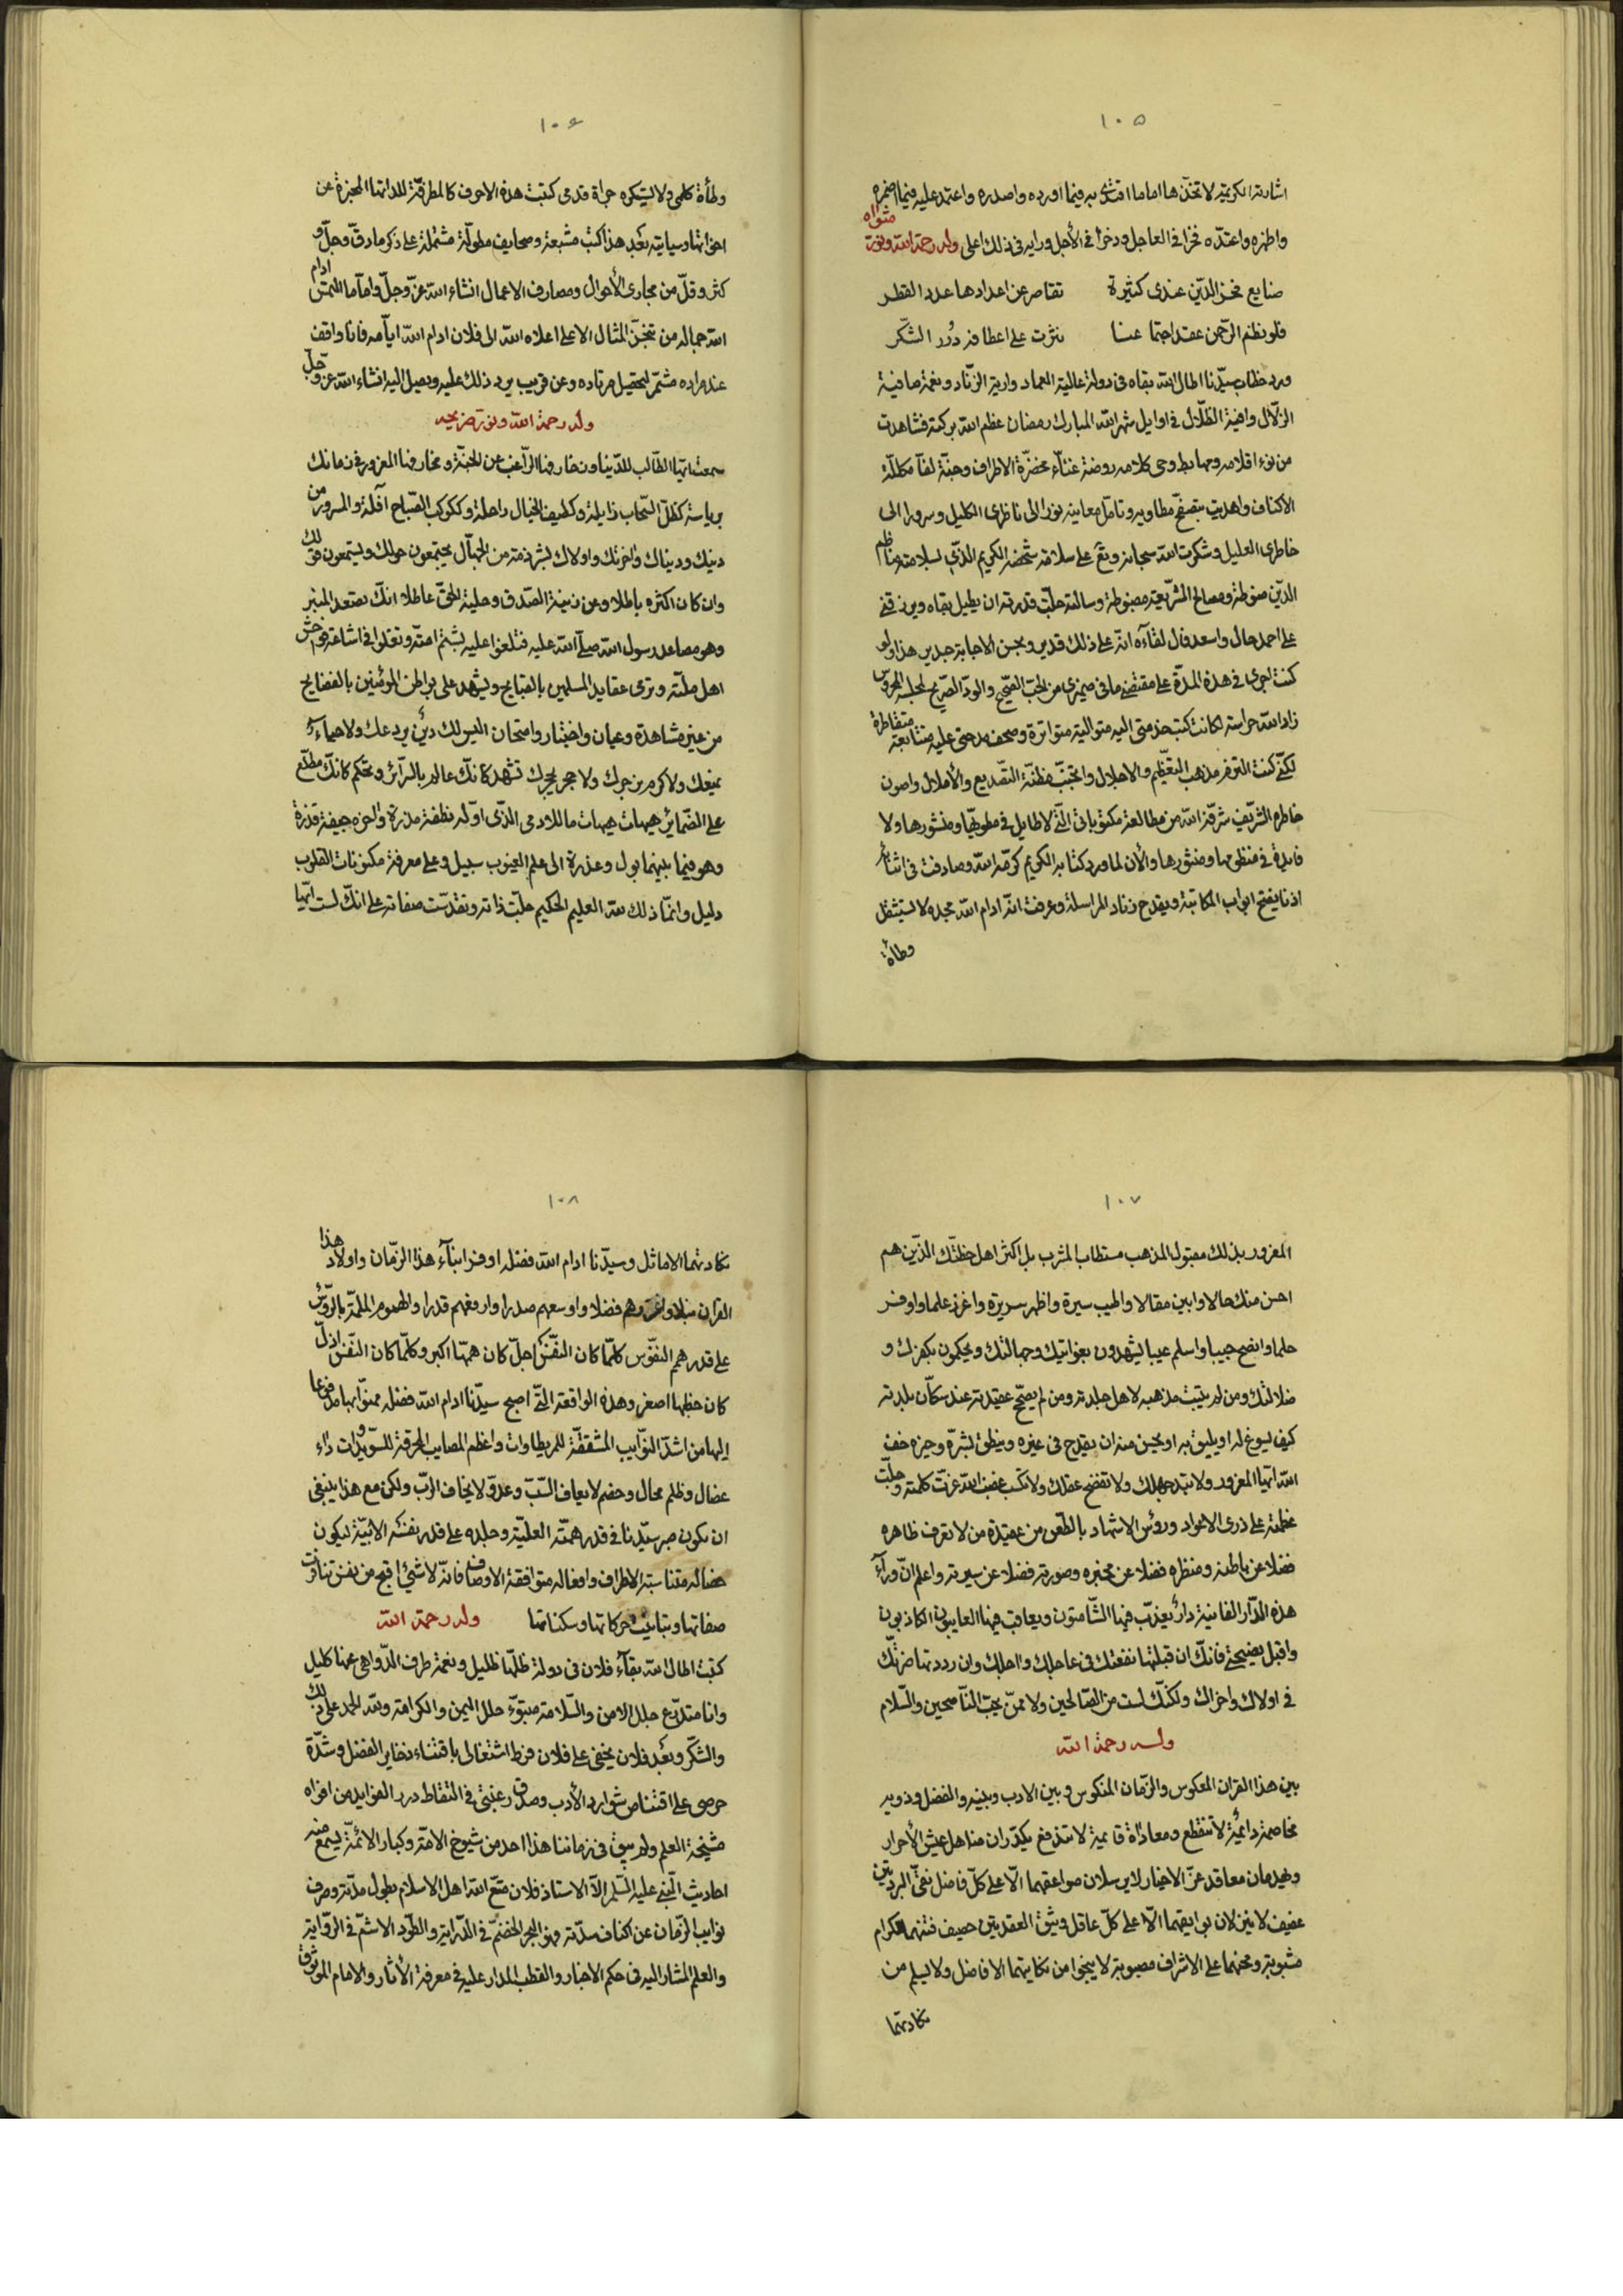 ١٠٥
اشارته الكريمة لاتخذنها اماما اقتدى به فيما اورده واصدره واعتمد عليه فيما اضمره
واظهره واعتده فخرا في العاجل وذخرا في الآجل ورايه في ذلك اعلى وله رحمة الله ونور مثواه
صنايع فخر الدين عندى كثيرة تقاصر عن اعدادها عدد القطر
فلو نظم الرحمن عقد اجتماعنا نثرت على اعطافه درر الشكر
ورد خطاب سيدنا اطال الله بقاه في دولة عالية العماد وارية الزناد ونعمة صافية
الزلال وافية الظلال في اوايل شهر الله المبارك رمضان عظم الله بركته فشاهدت
من نوء اقلامه ومهابط وحى كلامه روضة غناء مخضرة الاطراف وجنة لفآ مكللة
الاكناف واهديت بتصفح مطاويه وتامل معانيه نورا الى ناظرى الكليل وسرورا الى
خاطرى العليل وشكرت الله سبحانه وتع على سلامة شخصه الكريم الذى بسلامته مناظم
الدين منوطة ومصالح الشريعة مضبوطة وسالته جلت قدرته ان يطيل بقاه ويرزقنى
على احمد حال واسعد فال لقاءه انه على ذلك قدير وبحسن الاجابة جدير هذا ولو
كنت اجرى في هذه المدة على مقتضى ما في ضميرى من الحب الصحيح والود الصريح لمجلسه المحروس
زاد الله حراسته لكانت كتب خدمتى اليه متوالية متواترة وصحف مدحتى عليه متتابعة متقاطرة
لكنى كنت التزم مذهب التعظيم والاجلال واتجنب مظنة التصديع والاملال واصون
خاطره الشريف شرفه الله من مطالعة مكتوباتى التى لا طايل في مطويها ومنشورها ولا
فايدة في منظومها ومنثورها والآن لما ورد كتابه الكريم كرمه الله وصادفت في اثنائه
اذنا يفتح ابواب المكاتبة ويقدح زناد المراسلة وعرفت انه ادام الله مجده لا يستثقل
وطأة
١٠٦
وطأة كلمى ولا يستكره جراة قدمى كتبت هذه الاحرف كالمطرقة للداتها المخبرة عن
اخواتها وسياتيه بعد هذا كتب مشبعة وصحايف مطولة مشتملة على ذكر ما دق وجل و
كثر وقل من مجارى الأحوال ومصارف الاعمال انشاء الله عز وجل واما ما التمس ادام
الله جماله من تنجز المثال الاعلى اعلاه الله الى فلان ادام الله ايامه فانا واقف
عند مراده مشمر لتحصيل مرتاده وعن قريب يرد ذلك عليه ويصل اليه انشاء الله عز وجل
وله رحمة الله ونور ضريحه
سمعت ايها الطالب للدنيا وزخارفها الراغب عن الجنة و المغرور في زمانك
برياسة كظل السحاب زايلة وكطيف الخيال راحلة وككوكب الصباح آفلة والمسرور من
دينك ودنياك واخرتك واولاك بشرذمة من الجهال يجتمعون حولك ويستمعون قولك
وان كان اكثره باطلا وعن زينة الصدق وحلية الحق عاطلا انك تصعد المنبر
وهو مصاعد رسول الله صلى الله عليه فتلغوا عليه بشتم امته وتغلوا في اشاعة فواحش
اهل ملته وترمى عقايد المسلمين بالقبايح وتشهد على بواطن المؤمنين بالفضايح
من غير مشاهدة وعيان واختبار وامتحان اليس لك دين يردعك ولا حياء
يمنعك ولا كرم يزجرك ولا حجر يحجرك تشهد كانك عالم بالسرائر وتحكم كانك مطلع
على الضمائر هيهات هيهات ما للادمى الذى اوله نطفة مذرة واخره جيفة قذرة
وهو فيما بينهما بول وعذرة الى علم الغيوب سبيل وعلى معرفة مكنونات القلوب
دليل وانما ذلك لله العليم الحكيم جلت ذاته وتقدست صفاته على انك لست ايها
١٠٧
المغرور بذلك مقبول المذهب مستطاب المشرب بل اكثر اهل خطتك الذين هم
احسن منك حالا وابين مقالا واطيب سيرة واظهر سريرة واغزر علما واوفر
حلما وانصح جيبا واسلم عيبا يشهدون بغوايتك وجهالتك ويحكمون بكفرك و
ضلالتك ومن لم يثبت مذهبه لاهل جلدته ومن لم يصح عقيدته عند سكان بلدته
كيف يسوغ له او يليق به او يحسن منه ان يقدح في غيره وينطق بشره وخيره خف
الله ايها المغرور ولا تبد جهلك ولا تفضح عقلك ولا تكسب غضب الله عزت كلمته وجلت
عظمته على ذرى الاعواد ورؤس الاشهاد بالطعن من عقيدة من لا تعرف ظاهره
فضلا عن باطنه ومنظره فضلا عن مخبره وصورته فضلا عن سيرته واعلم ان وراء
هذه الدار الفانية دار يعذب فيها الشامتون ويعاقب فيها العايبون الكاذبون
واقبل نصيحتى فانك ان قبلتها نفعتك في عاجلك واجلك وان رددتها ضرتك
في اولاك واخراك ولكنك لست من الصالحين ولا ممن يحب الناصحين والسلام
وله رحمة الله
بين هذا القران المعكوس والزمان المنكوس وبين الادب وبنيه والفضل وذويه
مخاصمة دائمية لا تنقطع ومعاداة قايمية لا تندفع يكدران مناهل عيش الأحرار
ويهدمان معاقد عز الاخيار لا يرسلان صواعقهما الا على كل فاضل نقى البردين
عفيف لا ينزلان بوايقهما الا على كل عاقل وثيق العقد حصيف فتنهما للكرام
مشبوبة ومحنهما على الاشراف مصبوبة لا ينجوا من نكايتهما الافاضل ولا يسلم من
نكادتهما
١٠٨
نكادتهما الاماثل وسيدنا ادام الله فضله اوفر ابناء هذا الزمان واولاد هذا
القران نبلا واغزرهم فضلا واوسعهم صدرا وارفعهم قدرا والهموم الملمة بالرؤس
على قدر همم النفوس كلما كان النفس اجل كان همها اكبر وكلما كان النفس اذل
كان حظها اصغر وهذه الواقعة التى اصبح سيدنا ادام الله فضله ممنوا بها مدفوعا
اليها من اشد النوايب المشققة للمريطاوات واعظم المصايب المحرقة للسويدات داء
عضال وظلم محال وخصم لا يعاف السب وعدو لا يخاف الرب ولكن مع هذا ينبغى
ان يكون صبر سيدنا في قدر همته العلية وجلده على قدر نفسه الابية ليكون
خصاله متناسبة الاطراف وافعاله متوافقة الاوصاف فانه لا شئ اقبح من نفس تنافرت
صفاتها وتباينت حركاتها وسكناتها وله رحمة الله
كتبت اطال الله بقاء فلان في دولة ظلها ظليل ونعمة طرف الدواهى عنها كليل
وانا متدرع جلل الامن والسلامة متبوء حلل اليمن والكرامة ولله الحمد على ذلك
والشكر وبعد فلان يخفى على فلان فرط اشتغالى باقتناء ذخاير الفضل وشدة
حرصى على اقتناص شوارد الأدب وصدق رغبتى في التقاط درر الفوايد من افواه
مشيخة العلم ولم يبق في زماننا هذا احد من شيوخ الامة وكبار الائمة يسمع منه
احاديث النبى عليه السلم الا الاستاذ فلان متع الله اهل الاسلام بطول مدته وصرف
نوايب الزمان عن اكناف سدته فهو البحر الخضم في الدراية والطود الاشم في الرواية
والعلم المشار اليه في حكم الاخبار والقطب المدار عليه في معرفة الأثار والامام الموثوق